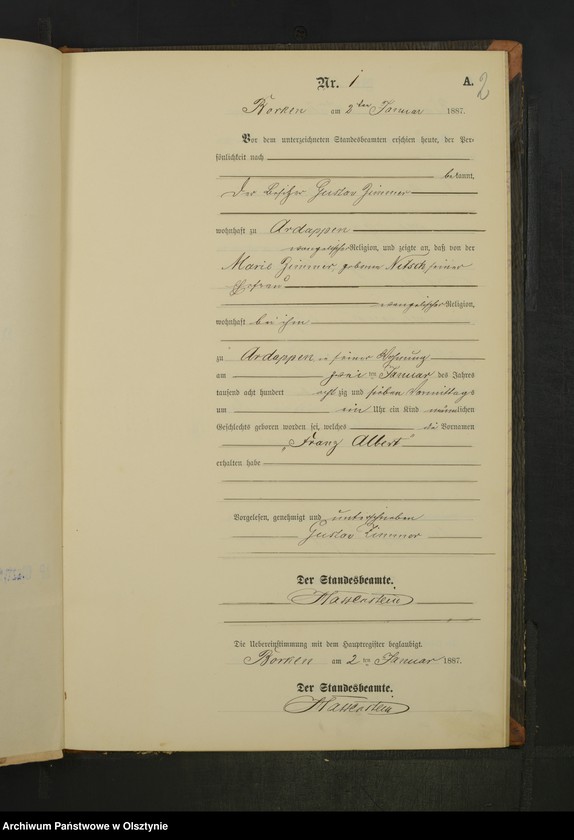 Nr. 1
A. 2
Borken am 2ten Januar 1887.
Vor dem unterzeichneten Standesbeamten erschien heute, der Per-
sönlichkeit nach
bekannt,
der Besitzer Gustav Zimmer
wohnhaft zu Ardappen
evangelischer Religion, und zeigte an, daß von der
Marie Zimmer, geborene Nitsch, seiner
Ehefrau
evangelischer Religion,
wohnhaft bei ihm
zu Ardappen in seiner Wohnung
am zwei ten Januar des Jahres
tausend acht hundert achtzig und sieben Vormittags
um ein Uhr ein Kind männlichen
Geschlechts geboren worden sei, welches die Vornamen
„Franz Albert“
erhalten habe
Vorgelesen, genehmigt und unterschrieben
Gustav Zimmer
Der Standesbeamte.
Die Uebereinstimmung mit dem Hauptregister beglaubigt.
Borken am 2 ten Januar 1887.
Der Standesbeamte.
Archiwum Państwowe w Olsztynie